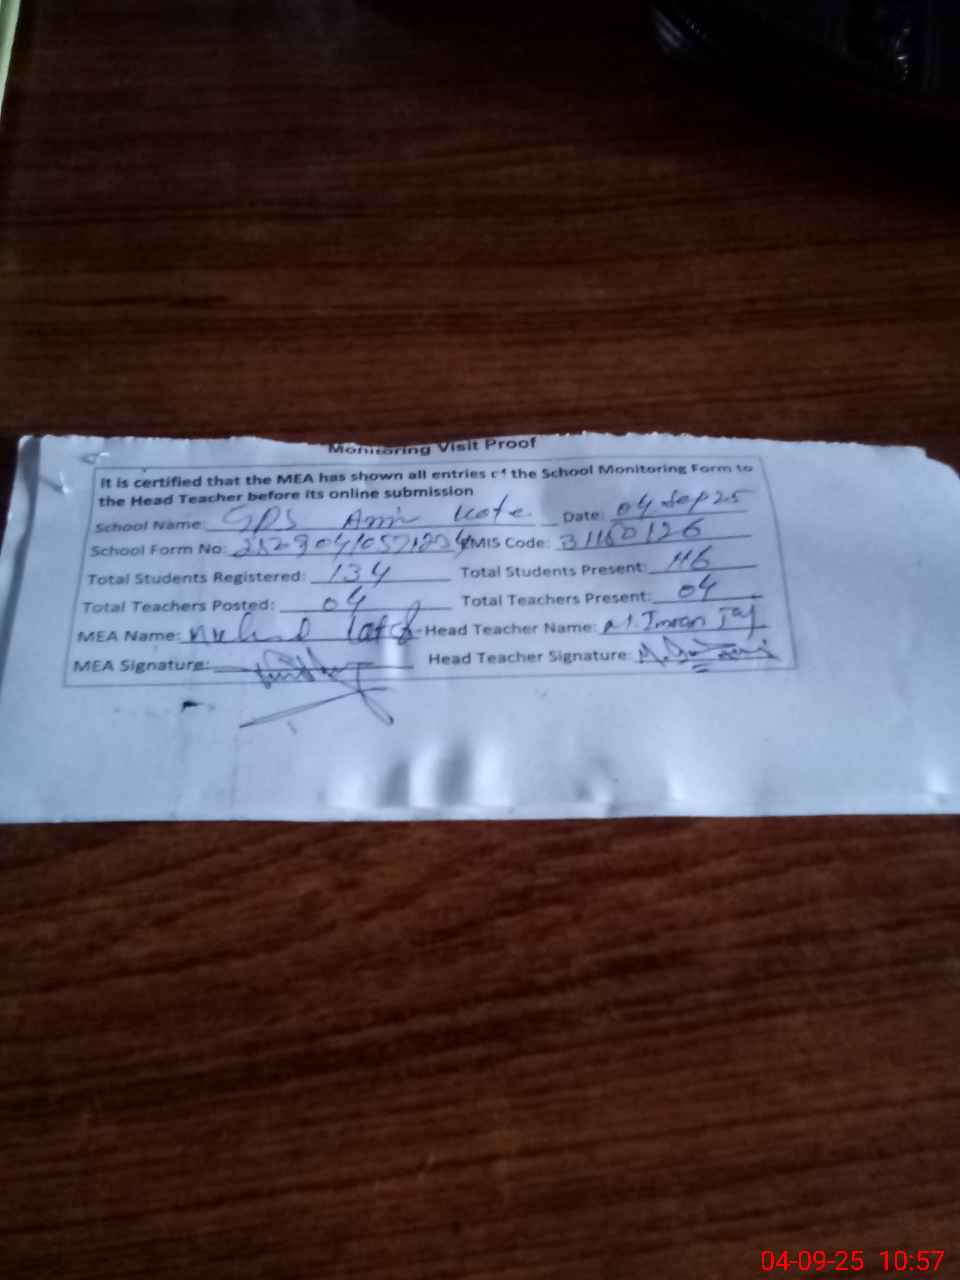 Monitoring Visit Proof
It is certified that the MEA has shown all entries of the School Monitoring Form to
the Head Teacher before its online submission
School Name: GPS Kote Date: 04 Sep 25
School Form No: EMIS Code: 31180126
Total Students Registered: 134 Total Students Present: 116
Total Teachers Posted: 04 Total Teachers Present: 04
MEA Name: Head Teacher Name: M. Imran Taj
MEA Signature: Head Teacher Signature:
04-09-25 10:57